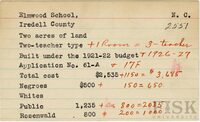 Elmwood School, N. C.
Iredell County 2551
Two acres of land
Two-teacher type + 1 Room = 3-teacher
Built under the 1921-22 budget + 1926-27
Application No. 61-A + 17F
Total cost $2,535 + 1150 = $3,685
Negroes $500 + 150 = 650
Whites
Public 1,235 + 800 = 2035
Rosenwald 800 + 200 = 1000
FISK
UNIVERSITY